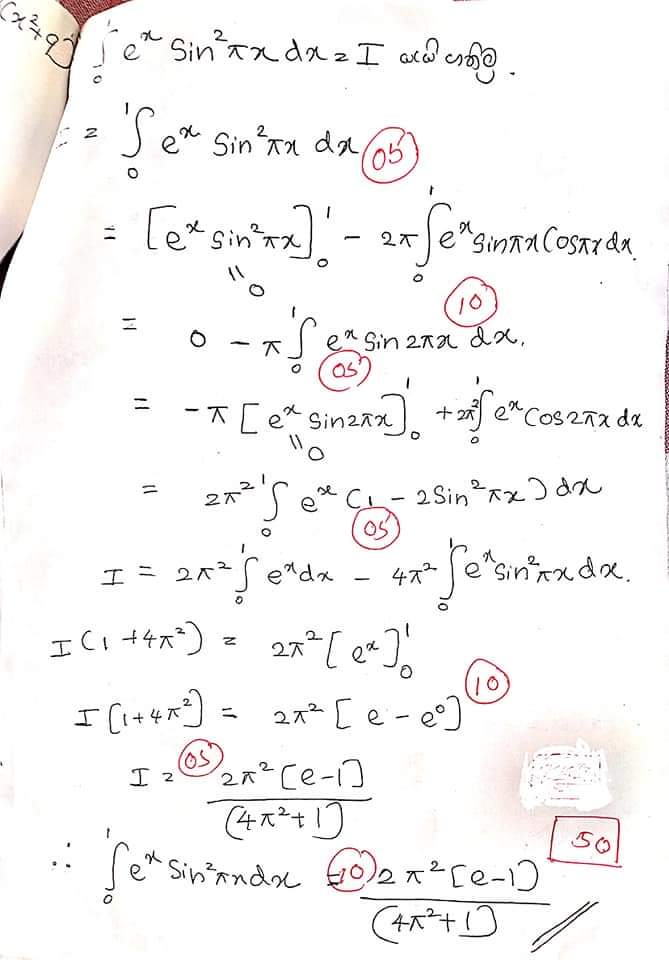 (x²+9) ∫₀¹ eˣ Sin²πx dx = I යැයි ගනිමු.
= ∫₀¹ eˣ Sin²πx dx (05)
= [eˣ sin²πx]₀¹ - 2π∫₀¹ eˣ sinπx Cosπx dx.
"0 (10)
= 0 - π∫₀¹ eˣ Sin 2πx dx.
(05)
= -π [eˣ sin2πx]₀¹ + 2π²∫₀¹ eˣ cos2πx dx
"0
= 2π² ∫₀¹ eˣ (1 - 2Sin²πx) dx
(05)
I = 2π² ∫₀¹ eˣdx - 4π² ∫₀¹ eˣ sin²πx dx.
I (1 + 4π²) = 2π² [eˣ]₀¹
I [1+4π²] = 2π² [e - e⁰] (10)
I = (05) 2π² [e-1]
(4π²+1)
∴ ∫₀¹ eˣ Sin²πx dx = (10) 2π² [e-1]
(4π²+1)
50